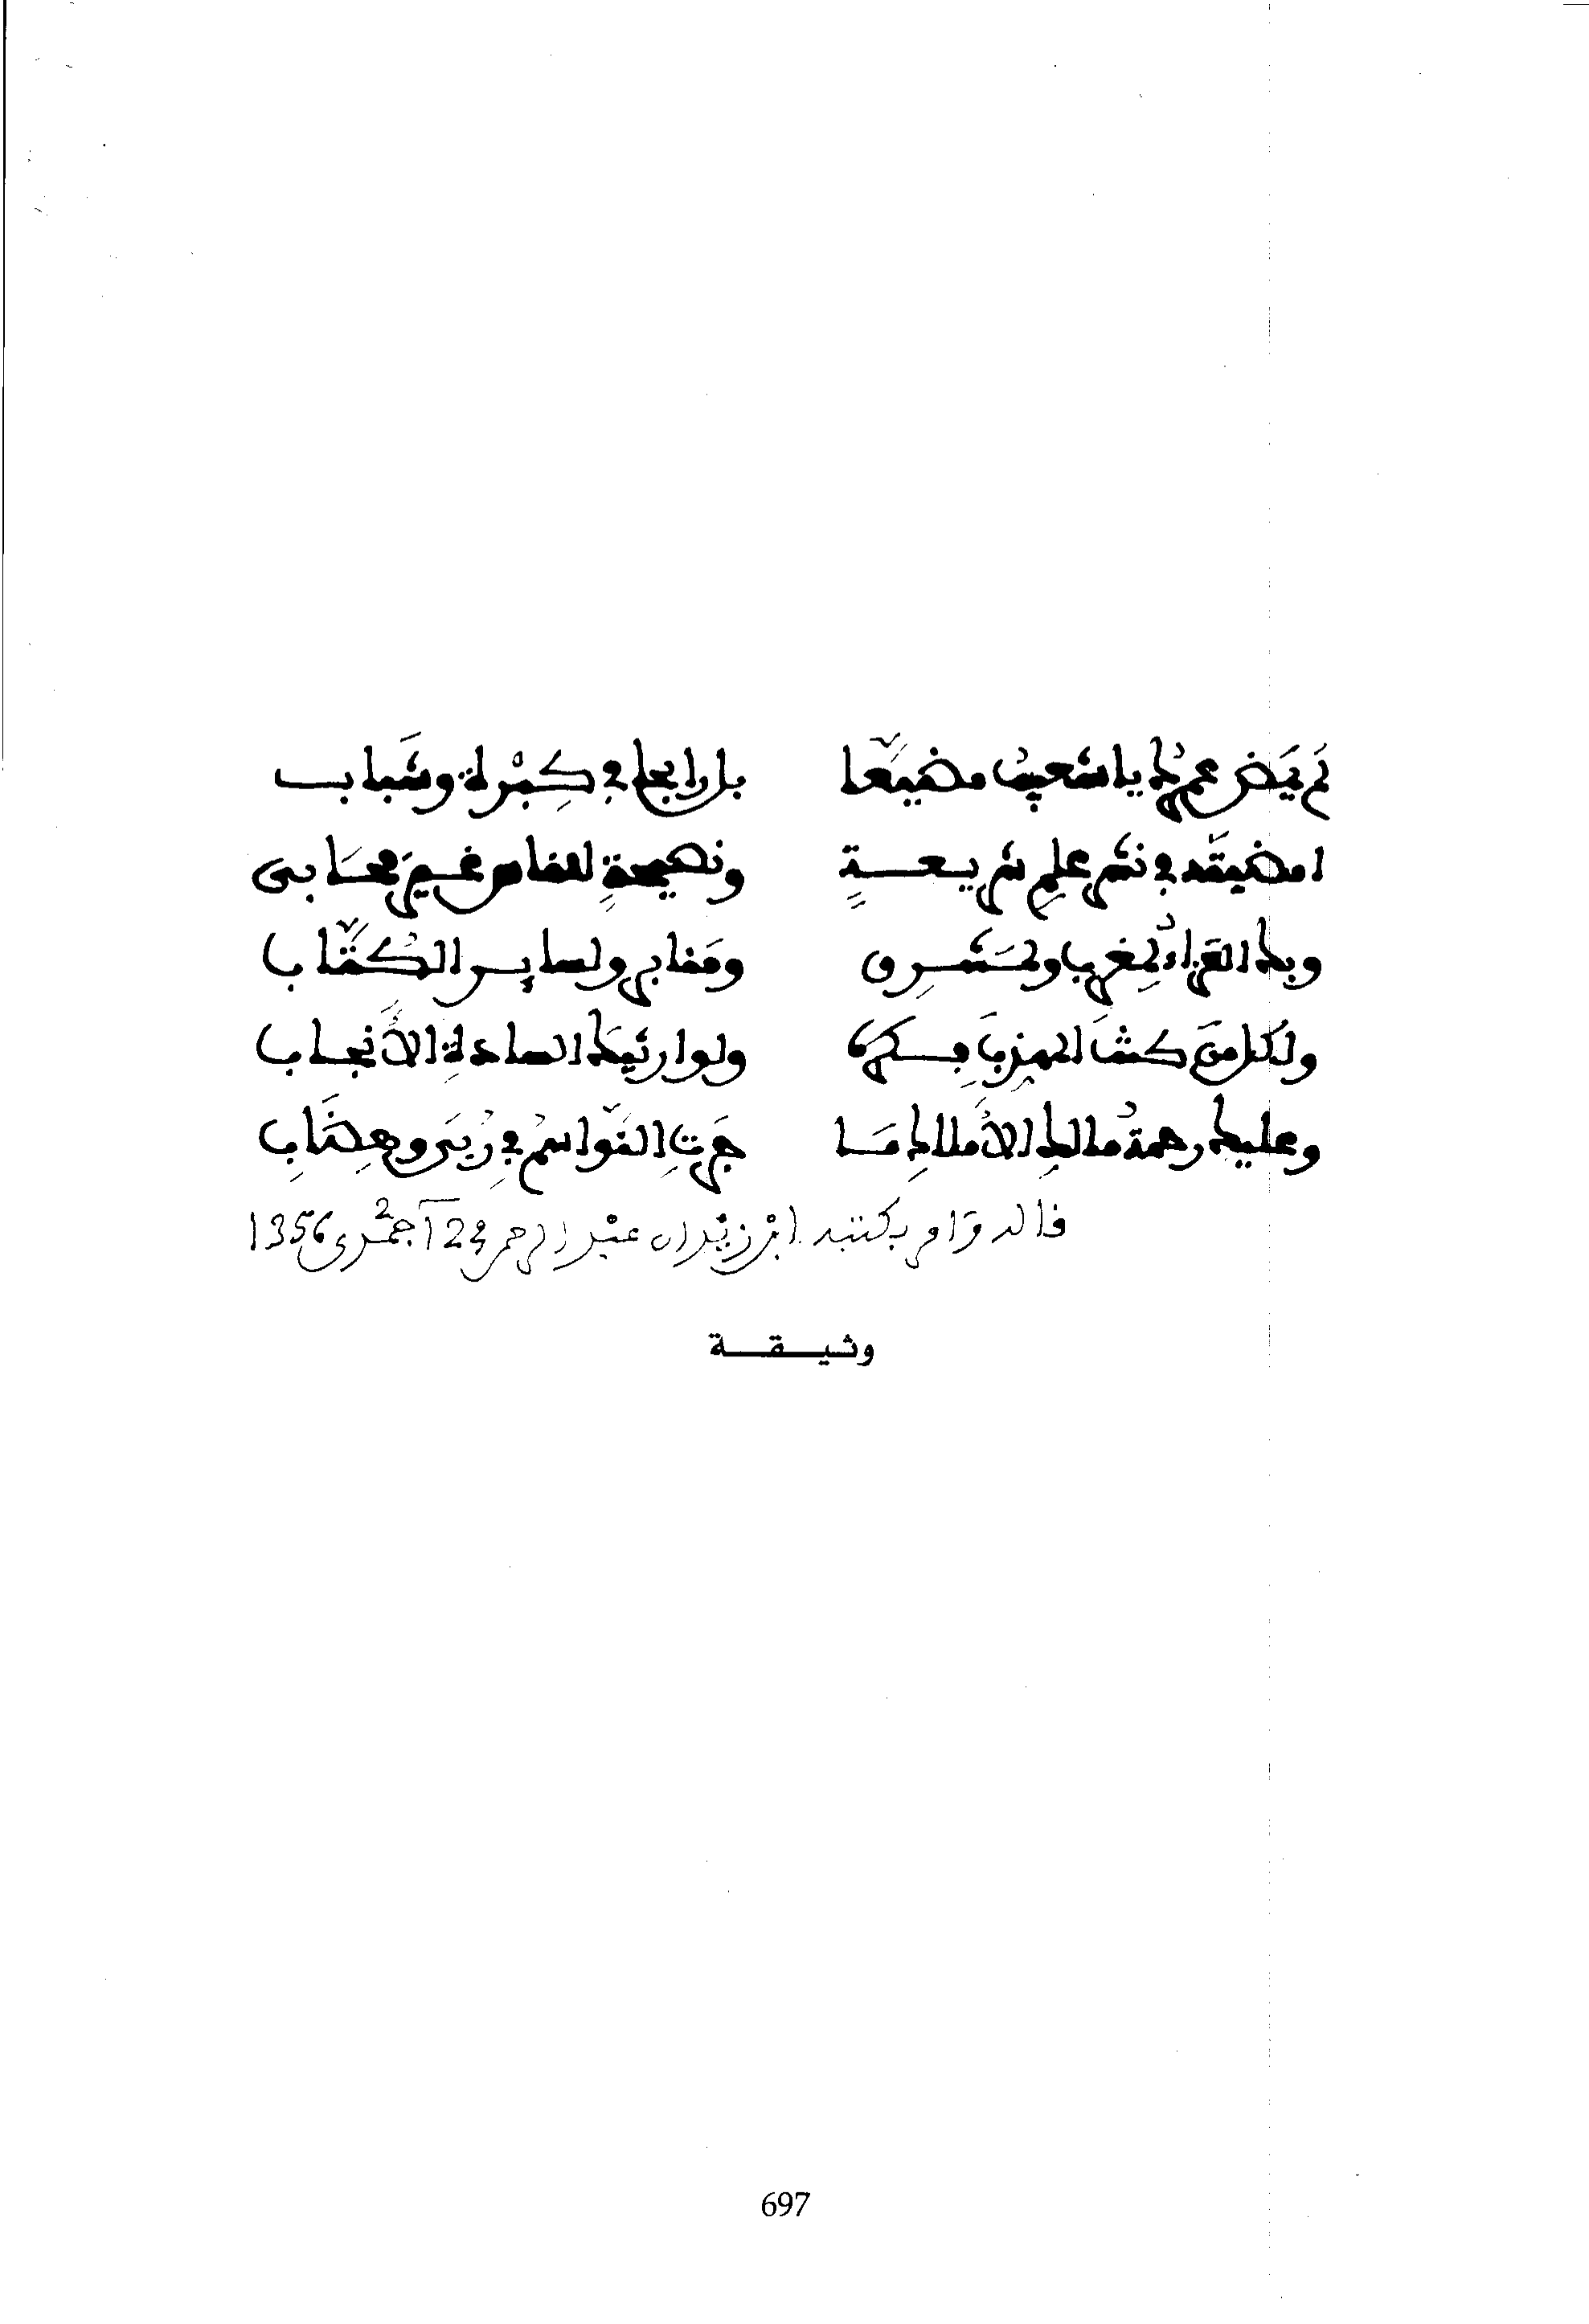 لم يَمض عمرُك يا شعيبُ مضيَّعا بل رابحا في كِبْرة وشَباب
امضيتَه في نشر علمِ شريعةٍ ونصيحةٍ للناس غيرَ محَابى
وبك القراءُ لمغرب ولمَشرِق ومنابر ولسايِر الكُتَّاب
ولكل من كشف المهذبَ فِكره ولوارثيك السادةِ الأَنجاب
وعليك رحمةُ مالكِ الأَملاك مَا جرتِ النَّواسمُ في رُبىً وهِضَابِ
قاله ورام بكتبه ابن زيدان عبد الرحمن في 12 جمدى 2 1356
وثيقة
697